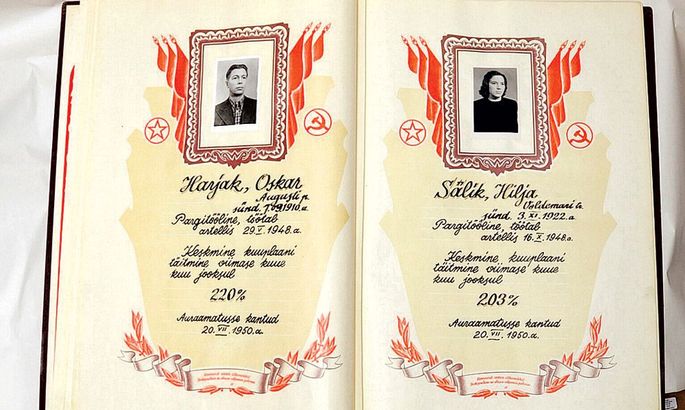 Harjak, Oskar
Augusti p.
sünd. 1910.a.
Pargitööline, töötab
artellis 29.X.1948.a.
Keskmine kuuplaani
täitmine viimase kuue
kuu jooksul
220%
Auraamatusse kantud
20.VII.1950.a.
Sälik, Hilja
Voldemari t.
sünd. 3.XI.1922.a.
Pargitööline, töötab
artellis 16.X.1948.a.
Keskmine kuuplaani
täitmine viimase kuue
kuu jooksul
203%
Auraamatusse kantud
20.VII.1950.a.